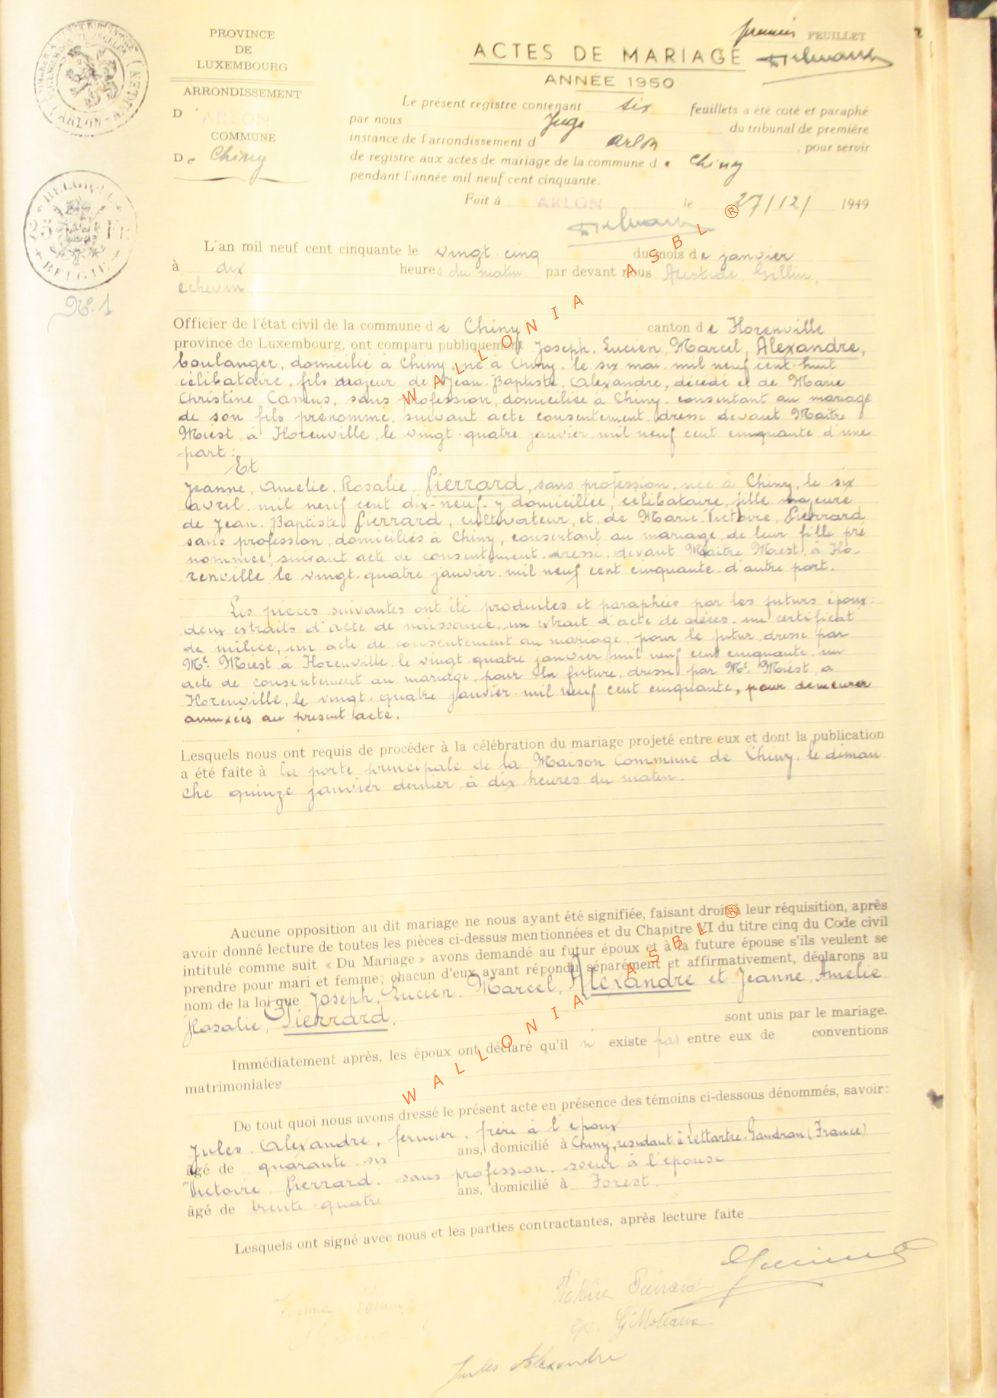 PROVINCE
DE
LUXEMBOURG
ARRONDISSEMENT
D' ARLON
COMMUNE
De Chiny
BELGIQUE
25 Fr
BELGIE
N° 1
premier FEUILLET
ACTES DE MARIAGE
ANNÉE 1950
Le présent registre contenant six feuillets a été coté et paraphé
par nous Juge du tribunal de première
instance de l'arrondissement d Arlon, pour servir
de registre aux actes de mariage de la commune de Chiny
pendant l'année mil neuf cent cinquante.
Fait à ARLON le 27/12/ 1949
L'an mil neuf cent cinquante le vingt cinq du mois de janvier
à dix heures du matin par devant nous
échevin
Officier de l'état civil de la commune de Chiny canton de Florenville
province de Luxembourg, ont comparu publiquement Joseph, Lucien, Marcel, Alexandre,
boulanger, domicilié à Chiny, né à Chiny, le six mai mil neuf cent huit
célibataire, fils majeur de Jean-Baptiste, Alexandre, décédé et de Marie
Christine Camus, sans profession, domiciliée à Chiny, consentant au mariage
de son fils prénommé, suivant acte consentement dressé devant Maître
à Florenville, le vingt-quatre janvier mil neuf cent cinquante d'une
part;
Et
Jeanne, Amélie, Rosalie Pierrard, sans profession, née à Chiny, le six
avril mil neuf cent dix-neuf, y domiciliée, célibataire, fille majeure
de Jean-Baptiste Pierrard, cultivateur, et de Marie-Victoire, Pierrard
sans profession, domiciliés à Chiny, consentant au mariage de leur fille pré
nommée, suivant acte de consentement dressé devant Maître à Flo-
renville le vingt-quatre janvier mil neuf cent cinquante d'autre part.
Les pièces suivantes ont été produites et paraphées par les futurs époux:
deux extraits d'acte de naissance, un extrait d'acte de décès, un certificat
de milice, un acte de consentement au mariage pour le futur dressé par
Me à Florenville le vingt quatre janvier mil neuf cent cinquante, un
acte de consentement au mariage pour la future, dressé par Me à
Florenville, le vingt-quatre janvier mil neuf cent cinquante, pour demeurer
annexées au présent acte.
Lesquels nous ont requis de procéder à la célébration du mariage projeté entre eux et dont la publication
a été faite à la porte principale de la Maison Commune de Chiny, le diman
che quinze janvier dernier, à dix heures du matin.
Aucune opposition au dit mariage ne nous ayant été signifiée, faisant droit à leur réquisition, après
avoir donné lecture de toutes les pièces ci-dessus mentionnées et du Chapitre VI du titre cinq du Code civil
intitulé comme suit « Du Mariage » avons demandé au futur époux et à la future épouse s'ils veulent se
prendre pour mari et femme; chacun d'eux ayant répondu séparément et affirmativement, déclarons au
nom de la loi que Joseph, Lucien, Marcel, Alexandre et Jeanne, Amélie
Rosalie, Pierrard, sont unis par le mariage.
Immédiatement après, les époux ont déclaré qu'il n' existe pas entre eux de conventions
matrimoniales
De tout quoi nous avons dressé le présent acte en présence des témoins ci-dessous dénommés, savoir:
Jules, Alexandre, fermier, frère à l'époux
âgé de quarante six ans, domicilié à Chiny, résidant à (France)
Victoire Pierrard, sans profession, sœur à l'épouse
âgé de trente-quatre ans, domicilié à Forest.
Lesquels ont signé avec nous et les parties contractantes, après lecture faite
Jules Alexandre
WALLONIA ASBL ®
WALLONIA ASBL ®